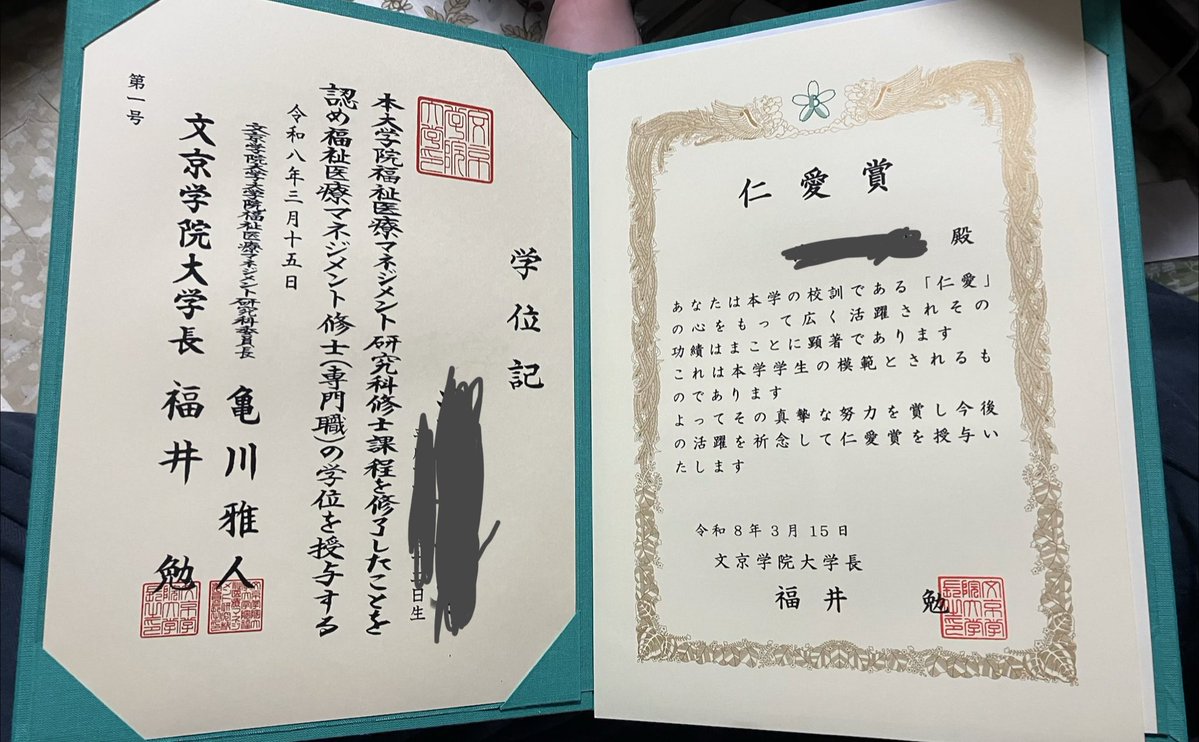 学位記
日生
本大学院福祉医療マネジメント研究科修士課程を修了したことを
認め福祉医療マネジメント修士(専門職)の学位を授与する
令和八年三月十五日
文京学院大学大学院福祉医療マネジメント研究科委員長 亀川雅人
文京学院大学長 福井 勉
第一号
文京
学院
大学印
文京学
院大学
長之印
仁愛賞
殿
あなたは本学の校訓である「仁愛」
の心をもって広く活躍されその
功績はまことに顕著であります
これは本学学生の模範とされるも
のであります
よってその真摯な努力を賞し今後
の活躍を祈念して仁愛賞を授与い
たします
令和8年3月15日
文京学院大学長
福井 勉
文京学
院大学
長之印